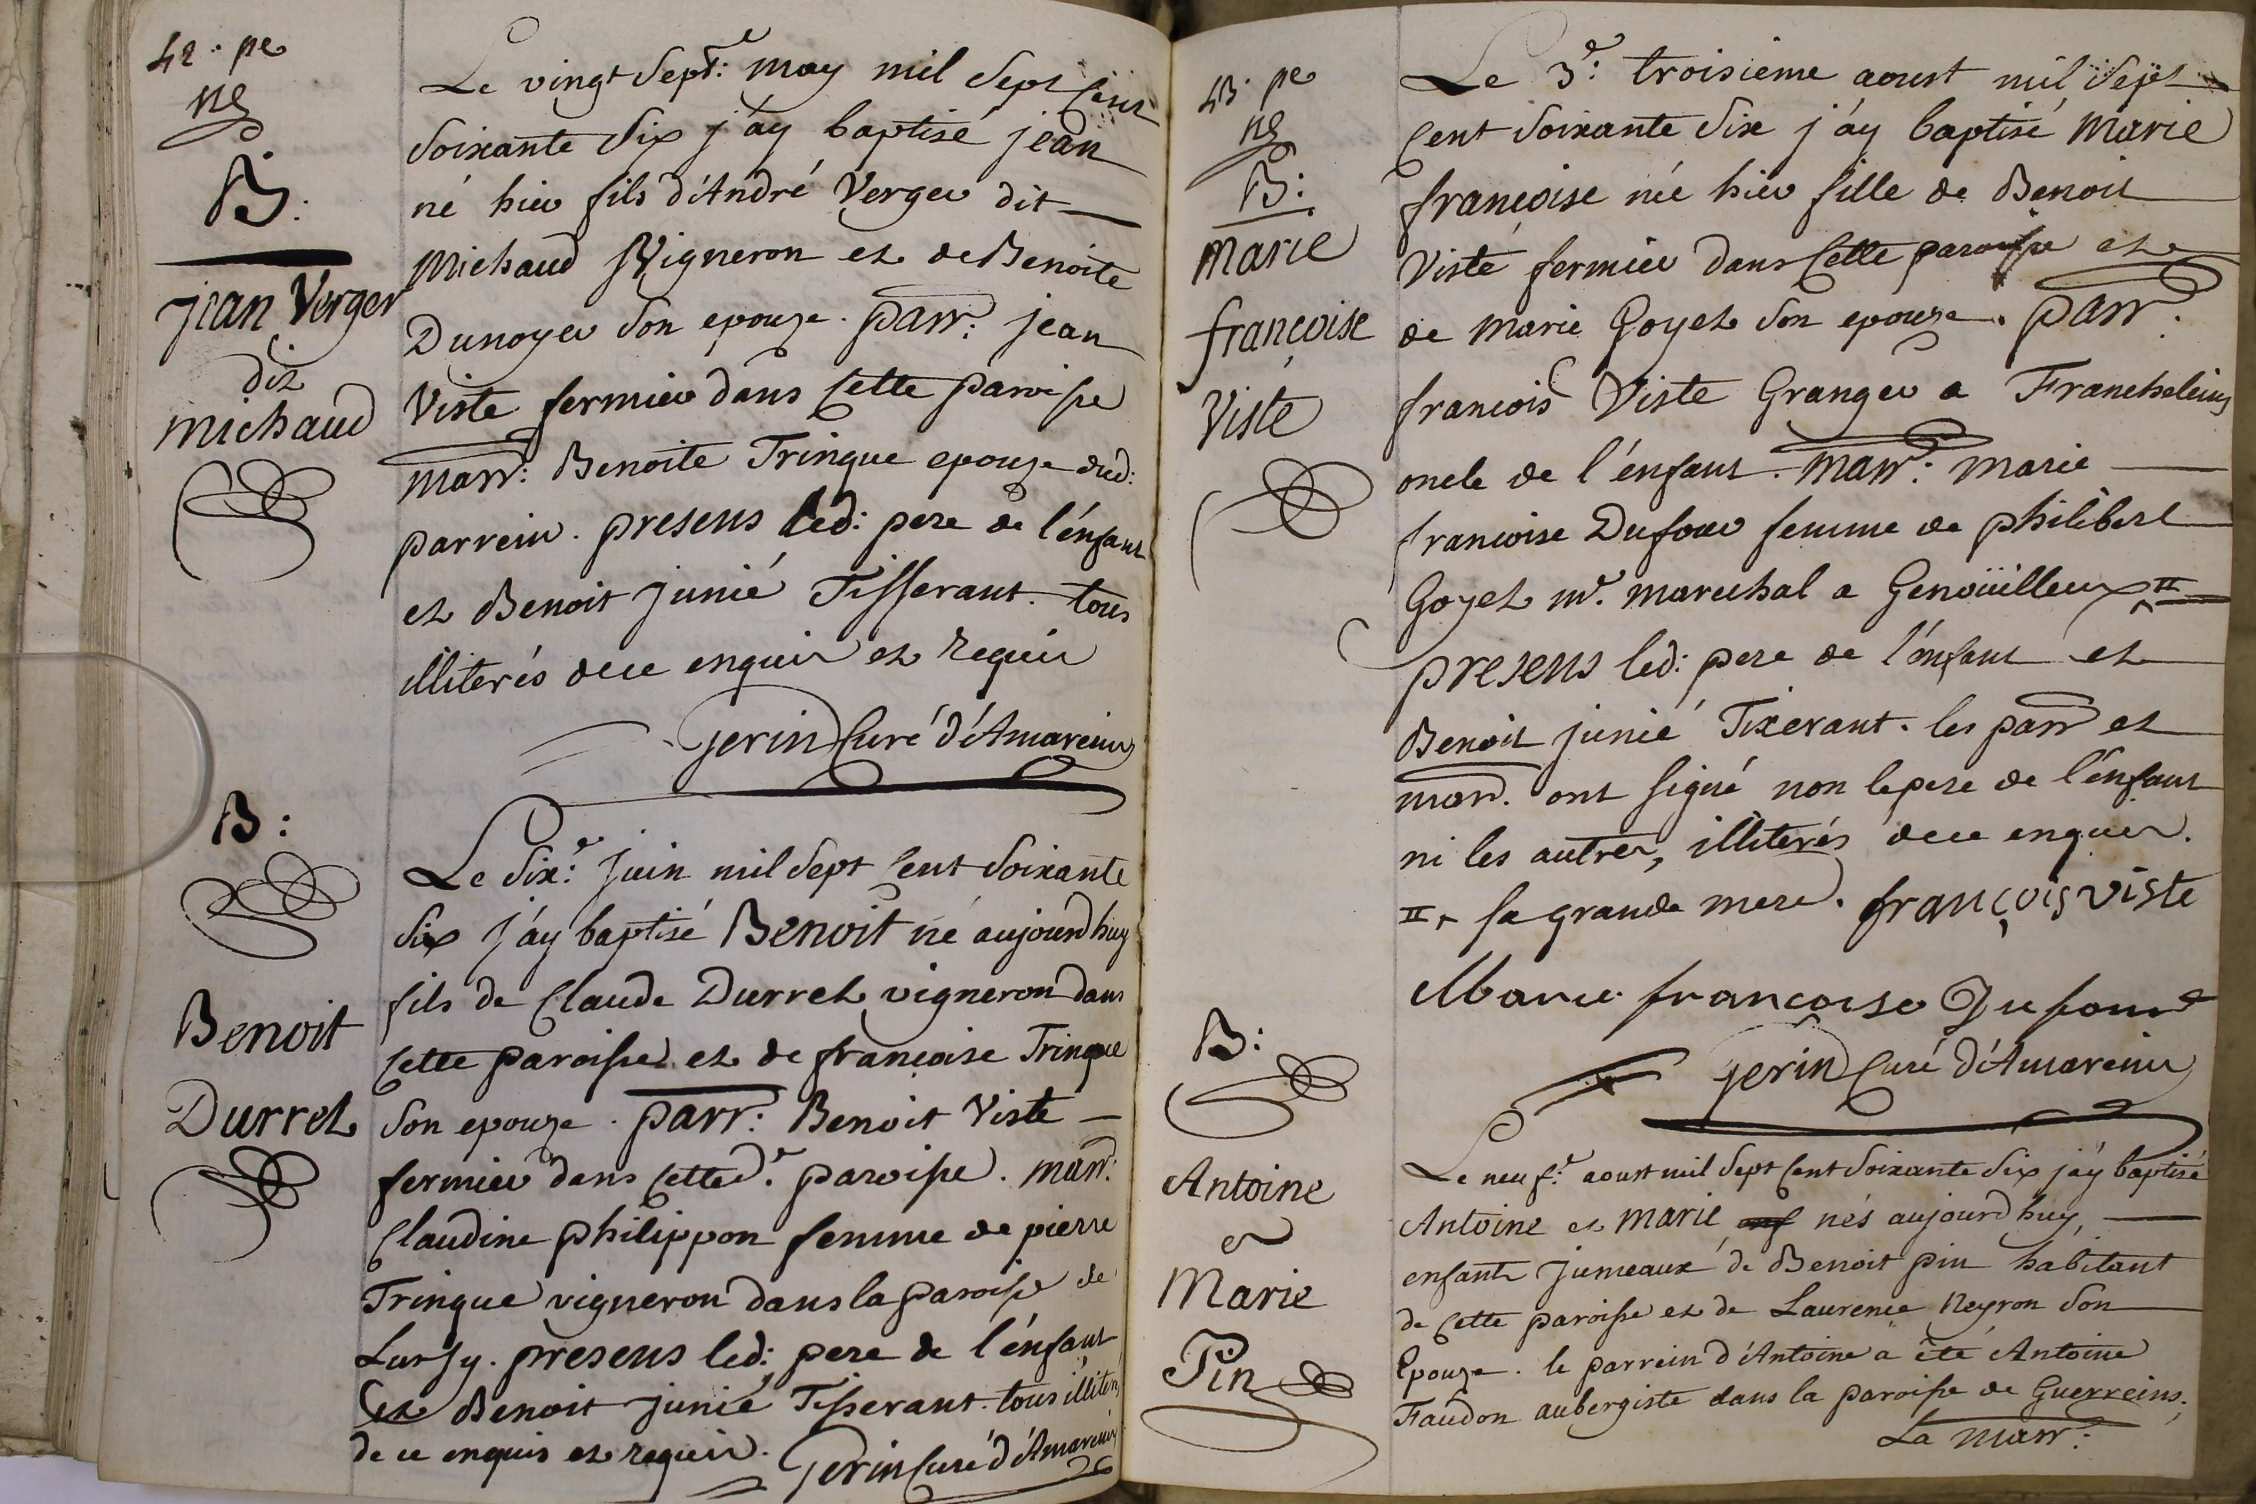 42.e pe
ng
B:
Jean Verger
dit
michaud
Le vingt sept.e may mil sept cent
soixante six j'ay baptisé jean
né hier fils d'André Verger dit
Michaud Vigneron et de Benoite
Dunoyer son epouze. parr: jean
Viste fermier dans cette paroisse
marr: Benoite Trinque epouze dud:
parrein. presens led: pere de l'énfant
et Benoit junié Tisserant. tous
illiterés de ce enquis et requis
Gerin Curé d'Amareins
B:
Benoit
Durret
Le six.e juin mil sept cent soixante
six j'ay baptisé Benoit né aujourd huy
fils de Claude Durret vigneron dans
cette paroisse et de françoise Trinque
son epouze. parr: Benoit Viste
fermier dans cetted.e paroisse. marr:
Claudine philippon femme de pierre
Trinque vigneron dans la paroisse de
Lursy. presens led: pere de l'énfant
et Benoit junié Tisserant. tous illiterés
de ce enquis et requis. Gerin Curé d'Amareins
43. pe
ng
B:
Marie
françoise
Viste
Le 3.e troisieme aoust mil sept
cent soixante six j'ay baptisé Marie
françoise née hier fille de Benoit
Viste fermier dans cette paroisse et
de marie Goyet son epouze. parr.
francois Viste Granger a Francheleins
oncle de l'énfant. marr: marie
francoise Dufour femme de philibert
Goyet m.e marechal a Genoüilleux II
presens led: pere de l'énfant et
Benoit junié Tixerant. les parr et
marr. ont signé non le pere de l'énfant
ni les autres, illiterés de ce enquis.
II + sa grande mere. françois viste
Marie francoise Dufour
Gerin Curé d'Amareins
B:
Antoine
et
Marie
Pin
Le neuf.e aoust mil sept cent soixante six j'ay baptisé
Antoine et marie nés aujourd huy,
enfants jumeaux de Benoit pin habitant
de cette paroisse et de Laurence Neyron son
Epouze. le parrein d'Antoine a été Antoine
Faudon aubergiste dans la paroisse de Guerreins.
La marr: